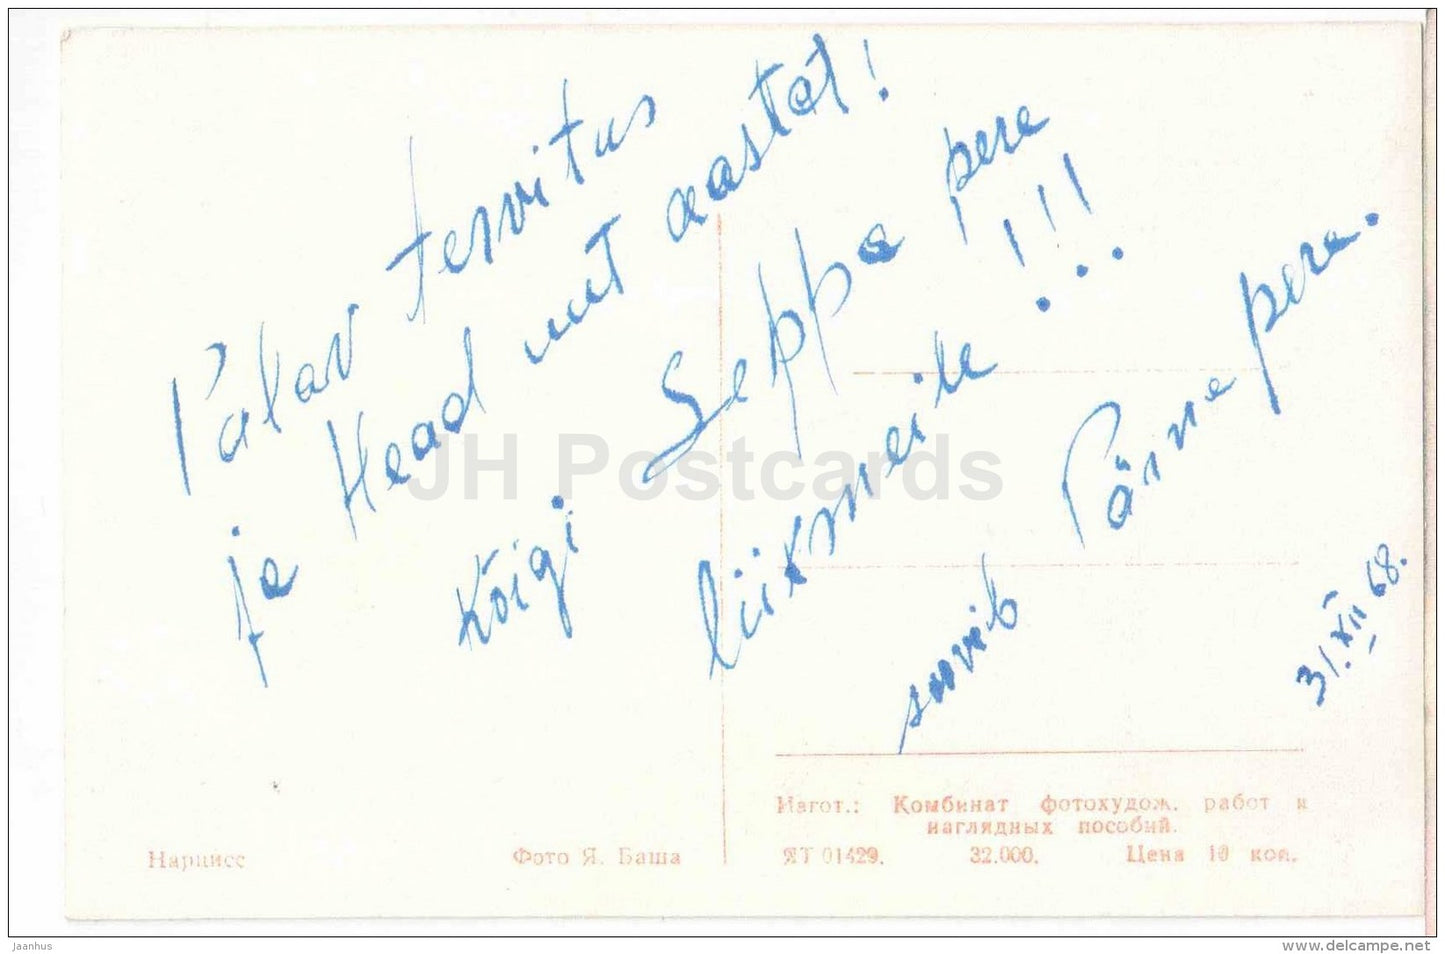 Palav tervitus
ja Head uut aastat!
Kõigi Seppa pere
liikmeile !!!
soovib Pärna pere.
31.XII 68.
JH Postcards
Нарцисс
Фото Я. Баша
Изгот.: Комбинат фотохудож. работ и
наглядных пособий.
ЯТ 01429. 32.000. Цена 10 коп.
Jaanhus
www.delcampe.net